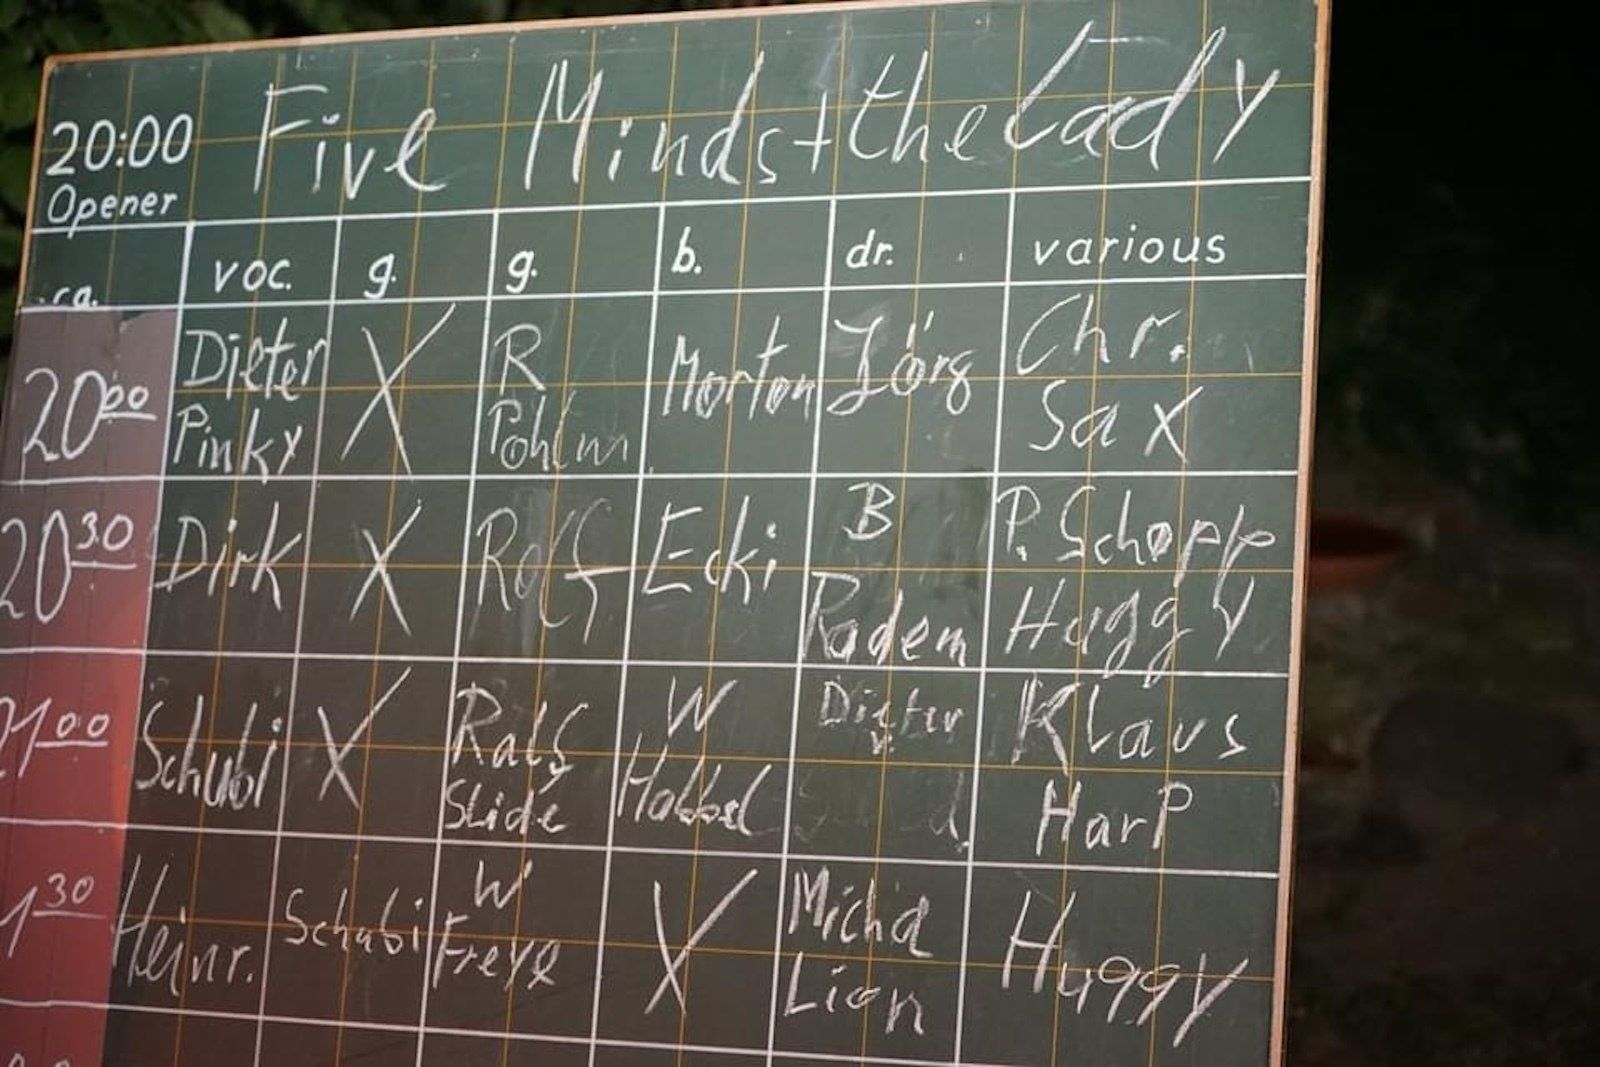 20:00 Five Minds + the Lady
Opener
ca. voc. g. g. b. dr. various
20 00 Dieter X R Morton Jörg Chr.
Pinky Sax
20 30 Dirk X Rolf Ecki B P. Schopp
Radem Huggy
21 00 Schubi X Ralf W Dieter Klaus
Slide Habbel v. Harp
1 30 Heinr. Schubi W X Micha Huggy
Freye Lion